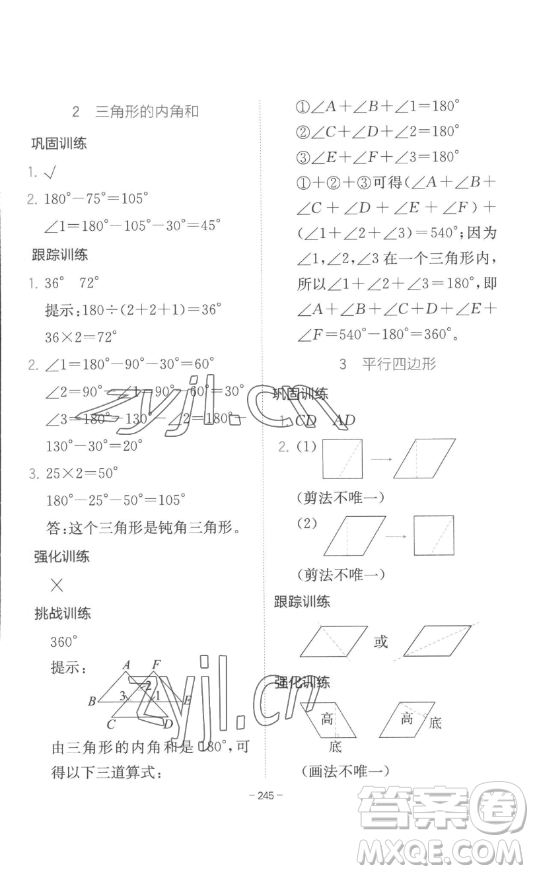 2 三角形的内角和
巩固训练
1. √
2. 180°-75°=105°
∠1=180°-105°-30°=45°
跟踪训练
1. 36° 72°
提示:180÷(2+2+1)=36°
36×2=72°
2. ∠1=180°-90°-30°=60°
∠2=90°-∠1=90°-60°=30°
∠3=180°-130°-∠2=180°-
130°-30°=20°
3. 25×2=50°
180°-25°-50°=105°
答:这个三角形是钝角三角形。
强化训练
×
挑战训练
360°
提示:
A F
2
B 3 1 E
C D
由三角形的内角和是180°,可
得以下三道算式:
①∠A+∠B+∠1=180°
②∠C+∠D+∠2=180°
③∠E+∠F+∠3=180°
①+②+③可得(∠A+∠B+
∠C+∠D+∠E+∠F)+
(∠1+∠2+∠3)=540°;因为
∠1,∠2,∠3在一个三角形内,
所以∠1+∠2+∠3=180°,即
∠A+∠B+∠C+∠D+∠E+
∠F=540°-180°=360°。
3 平行四边形
巩固训练
1. CD AD
2. (1)
(剪法不唯一)
(2)
(剪法不唯一)
跟踪训练
或
强化训练
高 高
底 底
(画法不唯一)
245
zyjl.cn
zyjl.cn
答案圈
MXQE.COM